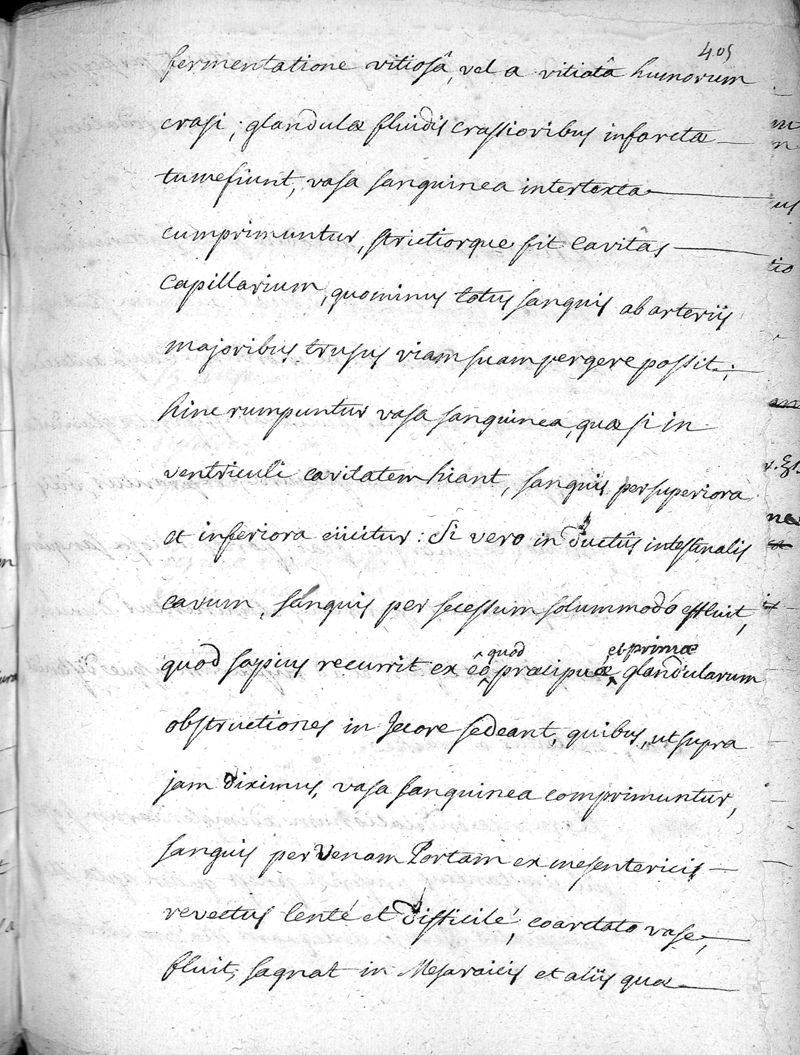 405
fermentatione vitiosâ, vel a vitiatâ humorum
crasi, glandulæ fluidis crassioribus infarctæ
tumefiunt, vasa sanguinea intertexta
cumprimuntur, strictiorque fit Cavitâs
Capillarium, quominus totus sanguis ab arteriis
majoribus trusus viam suam pergere possit;
hinc rumpuntur vasa sanguinea, quæ si in
ventriculi cavitatem hiant, sanguis per superiora
et inferiora eiicitur: Si vero in ductûs intestinalis
cavum, sanguis per secessum solummodó effluit,
quod sæpius recurrit ex eo quod præcipuæ et primæ glandularum
obstructiones in Jecore sedeant, quibus, ut supra
jam diximus, vasa sanguinea comprimuntur,
sanguis per Venam Portam ex mesentericis
revectus lenté et difficilé, coarctato vase,
fluit, sagnat in Mesaraicis et aliis quæ